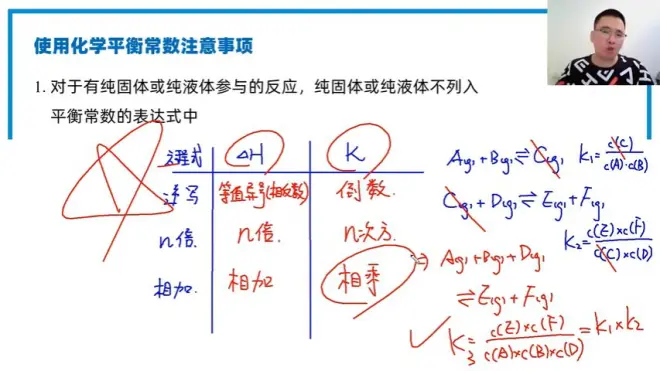 使用化学平衡常数注意事项
1. 对于有纯固体或纯液体参与的反应，纯固体或纯液体不列入
平衡常数的表达式中
方程式 ΔH K
逆写 等值异号(相反数) 倒数.
n倍. n倍. n次方.
相加. 相加 相乘
A(g)+B(g)⇌C(g) K₁=c(C)/c(A)·c(B)
C(g)+D(g)⇌E(g)+F(g)
K₂=c(E)×c(F)/c(C)×c(D)
⇒ A(g)+B(g)+D(g)
⇌E(g)+F(g)
K₃=c(E)×c(F)/c(A)×c(B)×c(D)=K₁×K₂